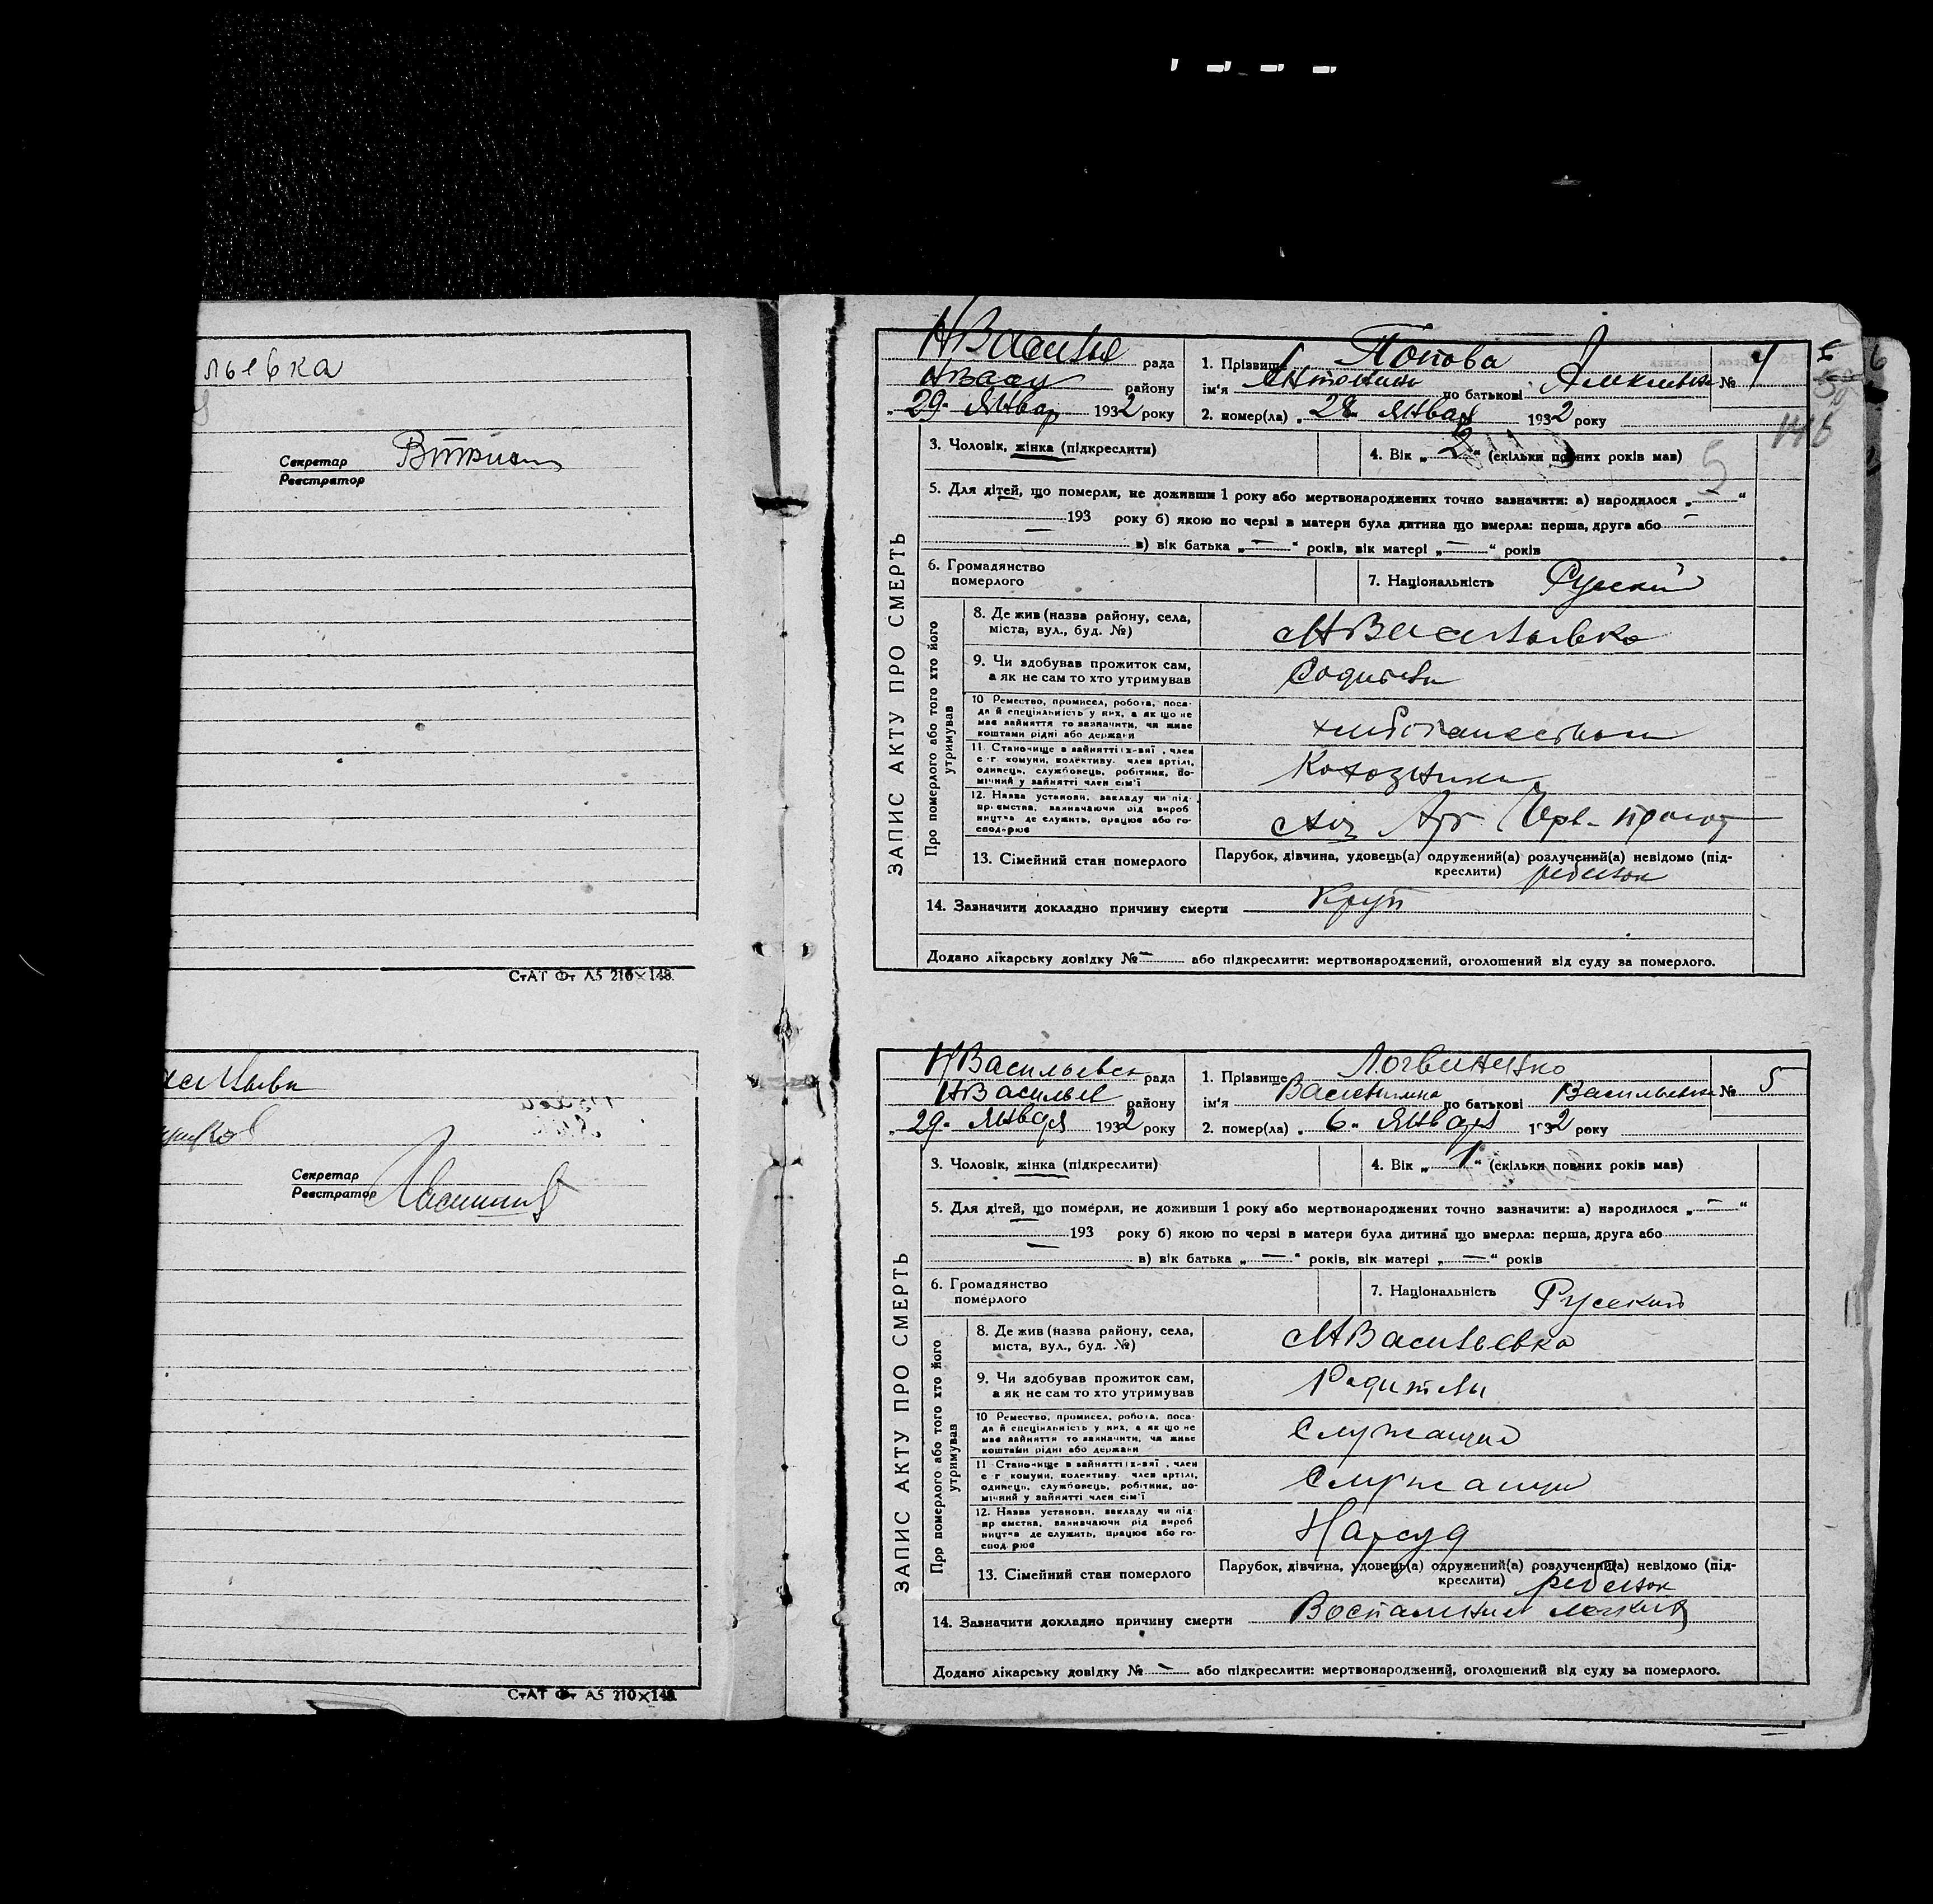 льевка
Секретар
Реєстратор
СтАТ Фт А5 210×148.
Секретар
Реєстратор
СтАТ Фт А5 210×148.
НВасилье рада
району
29 Январ 1932 року
1. Прізвище Попова
ім'я Антонина по батькові № 4
2. помер(ла) „ 28 Января 1932 року
146
5
ЗАПИС АКТУ ПРО СМЕРТЬ
3. Чоловік, жінка (підкреслити)
4. Вік „ 2 “ (скільки повних років мав)
5. Для дітей, що померли, не доживши 1 року або мертвонароджених точно зазначити: а) народилося „ “
— 193 року б) якою по черзі в матери була дитина що вмерла: перша, друга або —
в) вік батька „ — “ років, вік матері „ — “ років
6. Громадянство
померлого
7. Національність Руский
Про померлого або того хто його
утримував
8. Де жив (назва району, села,
міста, вул., буд. №)
НВасильевка
9. Чи здобував прожиток сам,
а як не сам то хто утримував
Родители
10 Ремество, промисел, робота, поса-
да й спеціяльність у них, а як що не
має зайняття то зазначити, чи живе
коштами рідні або держави
11. Становище в зайнятті їх-вні , член
с-г комуни, колективу, член артілі,
одинець, службовець, робітник, по-
мічний у зайнятті член сім'ї
Колхозники
12. Назва установи, закладу чи під-
приємства, зазначаючи рід вироб
ництва де служить, працює або го-
сподарює
13. Сімейний стан померлого
Парубок, дівчина, удовець(а) одружений(а) розлучений(а) невідомо (під-
креслити) ребенок
14. Зазначити докладно причину смерти Круп
Додано лікарську довідку № — або підкреслити: мертвонароджений, оголошений від суду за померлого.
НВасильевск рада
НВасилье району
„ 29 Января 1932 року
1. Прізвище Логвиненко
ім'я Валентина по батькові Васильевна № 5
2. помер(ла) „ 6 Января 1932 року
ЗАПИС АКТУ ПРО СМЕРТЬ
3. Чоловік, жінка (підкреслити)
4. Вік „ 1 “ (скільки повних років мав)
5. Для дітей, що померли, не доживши 1 року або мертвонароджених точно зазначити: а) народилося „ — “
— 193 року б) якою по черзі в матери була дитина що вмерла: перша, друга або
в) вік батька „ — “ років, вік матері „ — “ років
6. Громадянство
померлого
7. Національність Русский
Про померлого або того хто його
утримував
8. Де жив (назва району, села,
міста, вул., буд. №)
НВасильевка
9. Чи здобував прожиток сам,
а як не сам то хто утримував
Родители
10 Ремество, промисел, робота, поса-
да й спеціяльність у них, а як що не
має зайняття то зазначити, чи живе
коштами рідні або держави
Служащие
11 Становище в зайнятті їх-вні , член
с-г комуни, колективу, член артілі,
одинець, службовець, робітник, по-
мічний у зайнятті член сім'ї
Служащие
12. Назва установи, закладу чи під-
приємства, зазначаючи рід вироб
ництва де служить, працює або го-
сподарює
Нарсуд
13. Сімейний стан померлого
Парубок, дівчина, удовець(а) одружений(а) розлучений(а) невідомо (під-
креслити) ребенок
14. Зазначити докладно причину смерти Воспаление легких
Додано лікарську довідку № — або підкреслити: мертвонароджений, оголошений від суду за померлого.